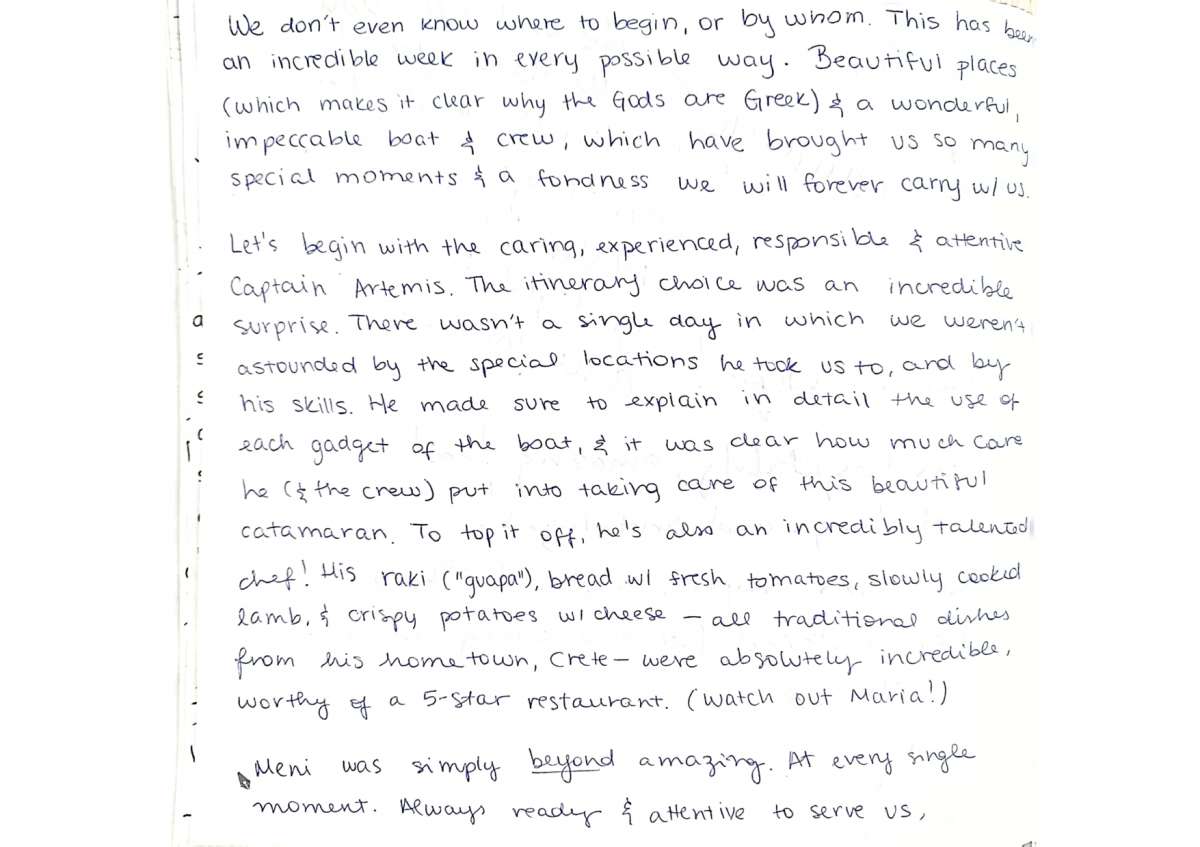 We don't even know where to begin, or by whom. This has been
an incredible week in every possible way. Beautiful places
(which makes it clear why the Gods are Greek) & a wonderful,
impeccable boat & crew, which have brought us so many
special moments & a fondness we will forever carry w/ us.
Let's begin with the caring, experienced, responsible & attentive
Captain Artemis. The itinerary choice was an incredible
surprise. There wasn't a single day in which we weren't
astounded by the special locations he took us to, and by
his skills. He made sure to explain in detail the use of
each gadget of the boat, & it was clear how much care
he (& the crew) put into taking care of this beautiful
catamaran. To top it off, he's also an incredibly talented
chef! His raki ("guapa"), bread w/ fresh tomatoes, slowly cooked
lamb, & crispy potatoes w/ cheese — all traditional dishes
from his hometown, Crete — were absolutely incredible,
worthy of a 5-star restaurant. (Watch out Maria!)
Meni was simply beyond amazing. At every single
moment. Always ready & attentive to serve us,